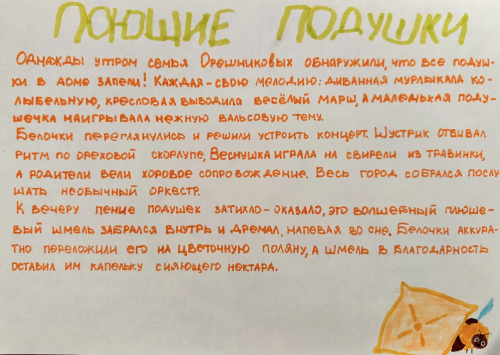 ПОЮЩИЕ ПОДУШКИ
Однажды утром семья Орешниковых обнаружили, что все подуш-
ки в доме запели! Каждая-свою мелодию: диванная мурлыкала ко-
лыбельную, кресловая выводила весёлый марш, а маленькая поду-
шечка наигрывала нежную вальсовую тему.
Белочки переглянулись и решили устроить концерт. Шустрик отбивал
ритм по ореховой скорлупе, Веснушка играла на свирели из травинки,
а родители вели хоровое сопровождение. Весь город собрался послу-
шать необычный оркестр.
К вечеру пение подушек затихло-оказало, это волшебный плюше-
вый шмель забрался внутрь и дремал, напевая во сне. Белочки аккура-
тно переложили его на цветочную поляну, а шмель в благодарность
оставил им капельку сияющего нектара.